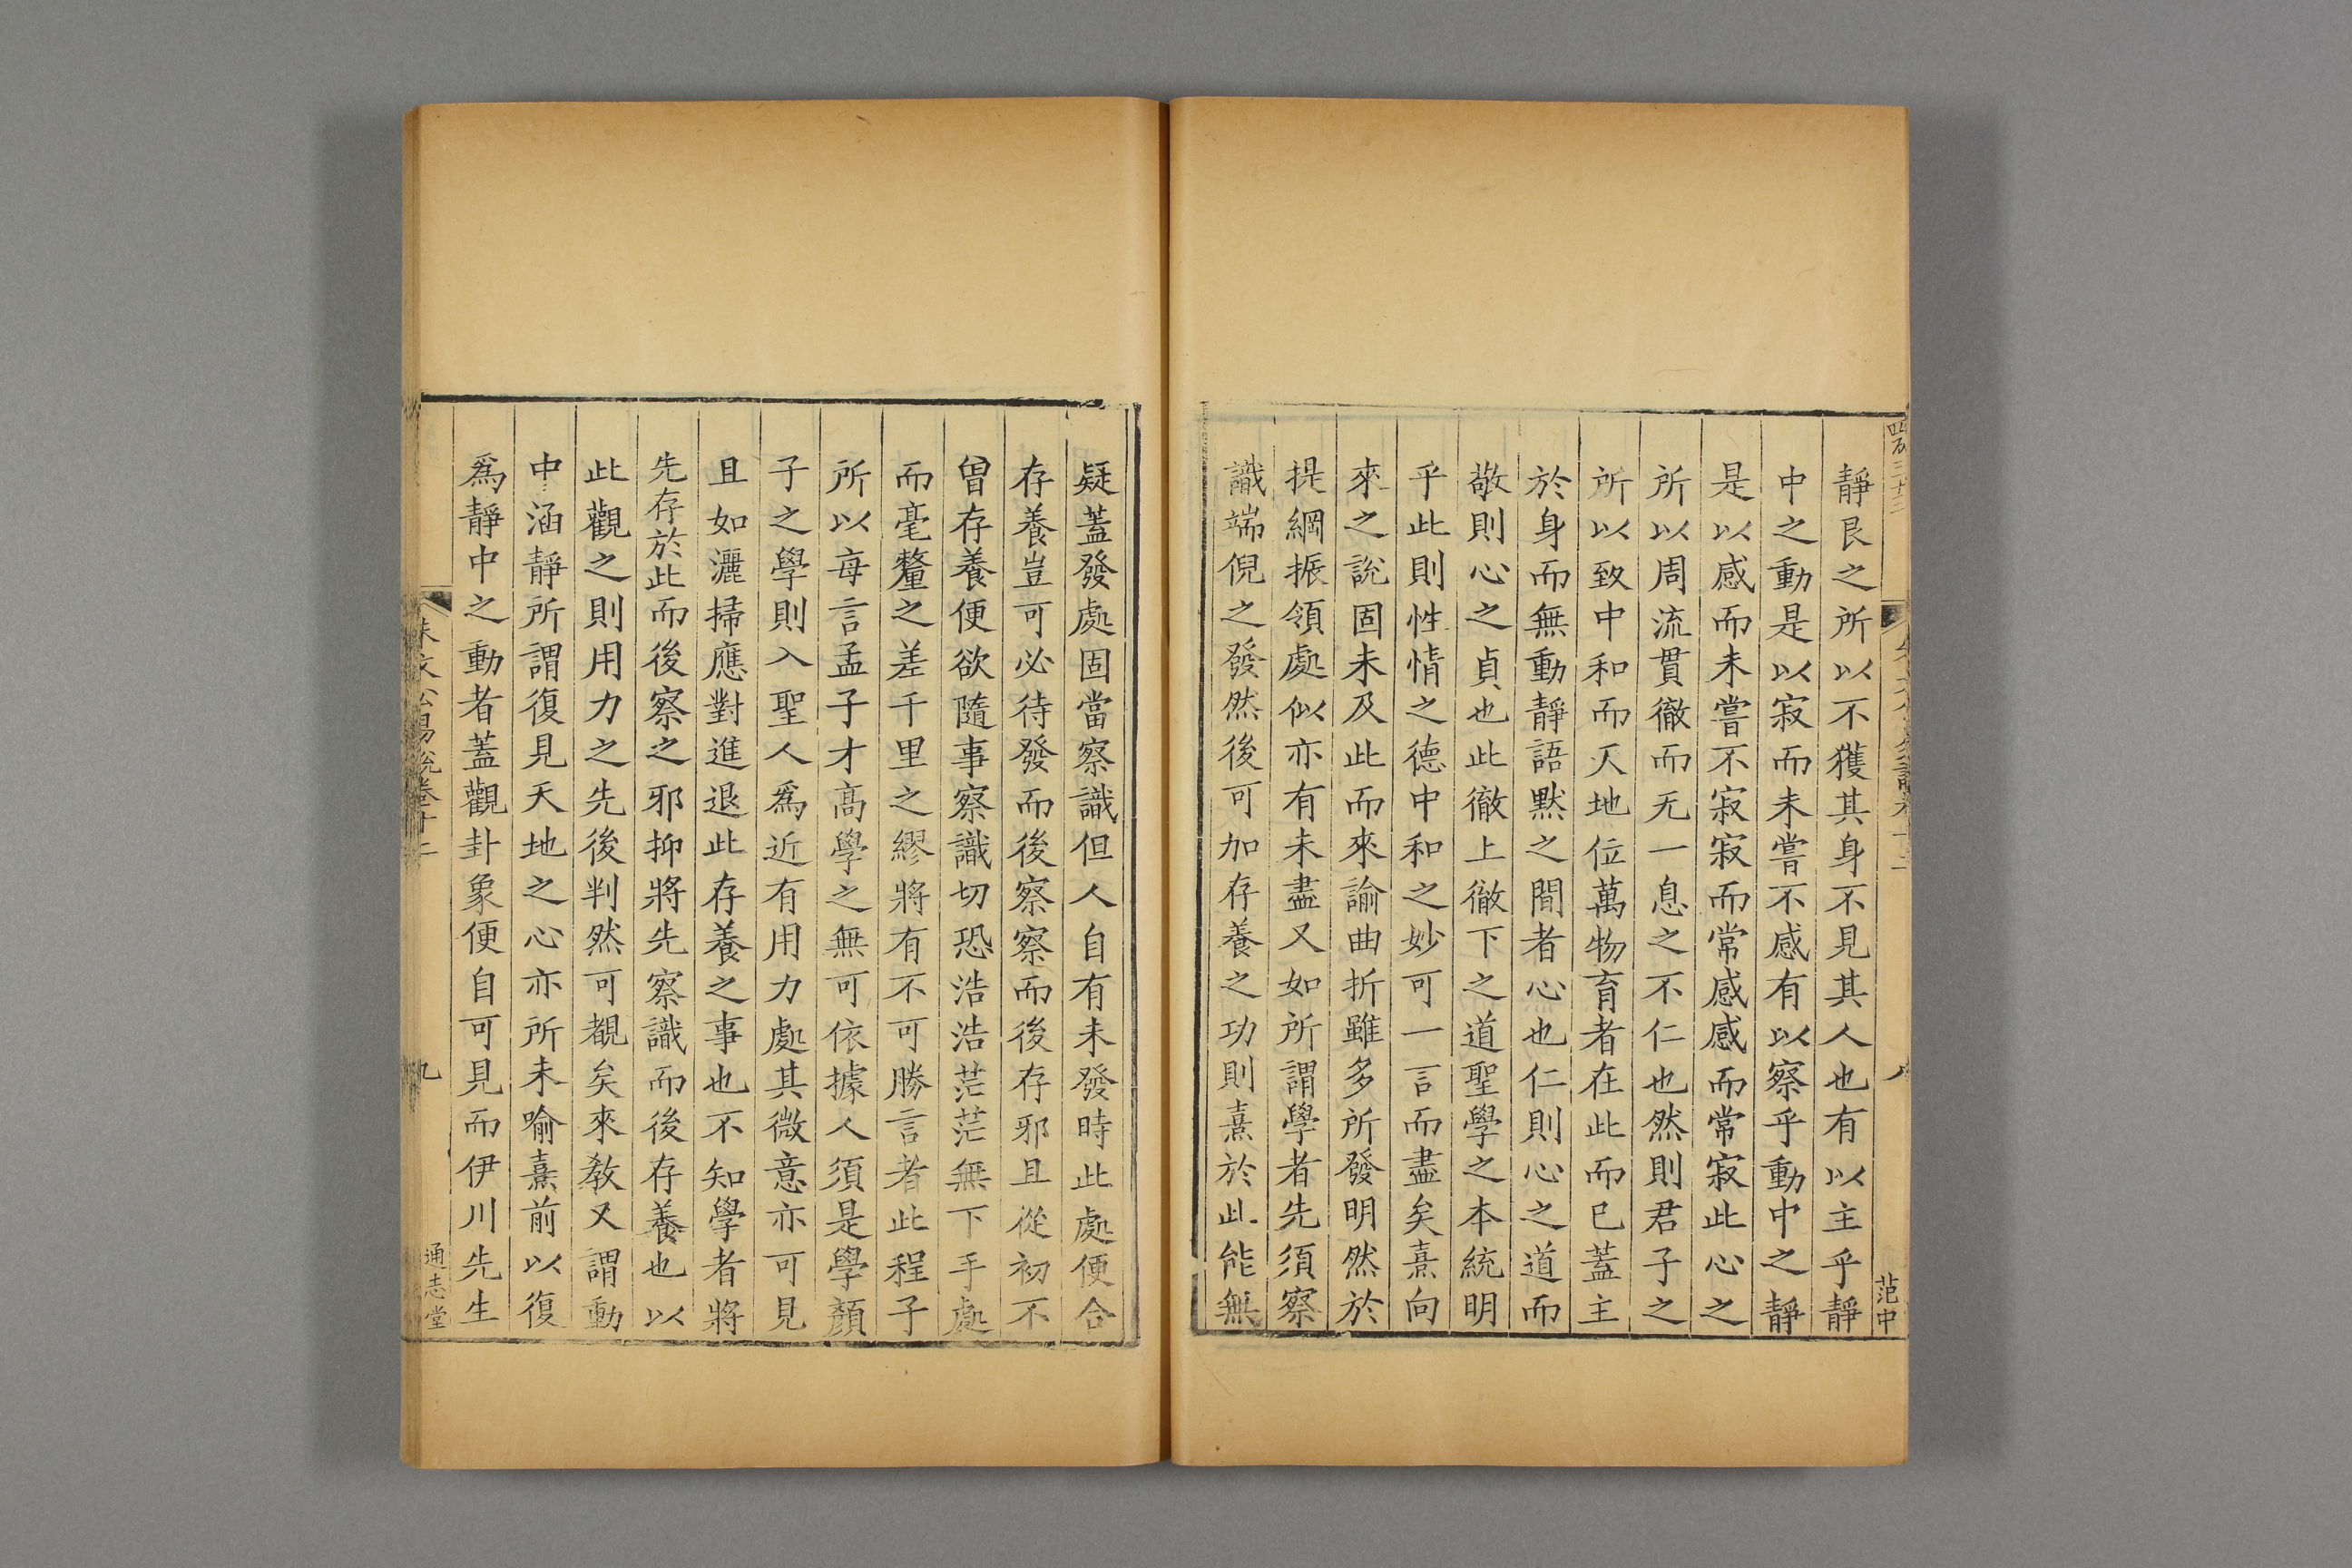 靜艮之所以不獲其身不見其人也有以主乎靜
中之動是以寂而未嘗不感有以察乎動中之靜
是以感而未嘗不寂寂而常感感而常寂此心之
所以周流貫徹而无一息之不仁也然則君子之
所以致中和而天地位萬物育者在此而已蓋主
於身而無動靜語默之間者心也仁則心之道而
敬則心之貞也此徹上徹下之道聖學之本統明
乎此則性情之德中和之妙可一言而盡矣熹向
來之說固未及此而來諭曲折雖多所發明然於
提綱振領處似亦有未盡又如所謂學者先須察
識端倪之發然後可加存養之功則熹於此能無
范中
疑蓋發處固當察識但人自有未發時此處便合
存養豈可必待發而後察察而後存邪且從初不
曾存養便欲隨事察識切恐浩浩茫茫無下手處
而毫釐之差千里之繆將有不可勝言者此程子
所以每言孟子才髙學之無可依據人須是學顏
子之學則入聖人爲近有用力處其微意亦可見
且如灑掃應對進退此存養之事也不知學者將
先存於此而後察之邪抑將先察識而後存養也以
此觀之則用力之先後判然可覩矣來敎又謂動
中涵靜所謂復見天地之心亦所未喻熹前以復
爲靜中之動者蓋觀卦象便自可見而伊川先生
朱文公易說卷十二
九
通志堂